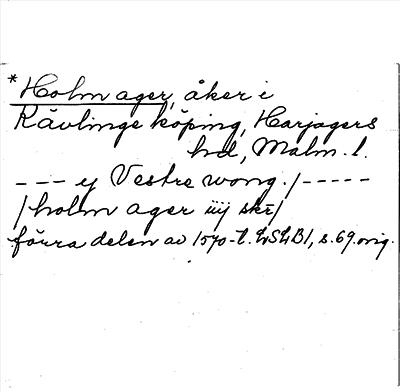 *Holm ager, åker i
Rävlinge köping, Harjagers
hd, Malm. l.
--- y Vestre wong. /-----
/holm ager iiij skr/
förra delen av 1570-t. LSLB1, s. 69. orig.